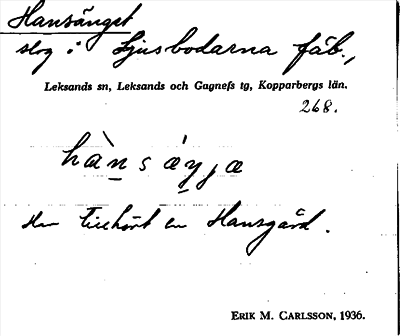 Hansänget
slog i Ljusbodarna fäb.,
Leksands sn, Leksands och Gagnefs tg, Kopparbergs län.
268.
hànsáŋɟa
Har tillhört en Hansgård.
ERIK M. CARLSSON, 1936.